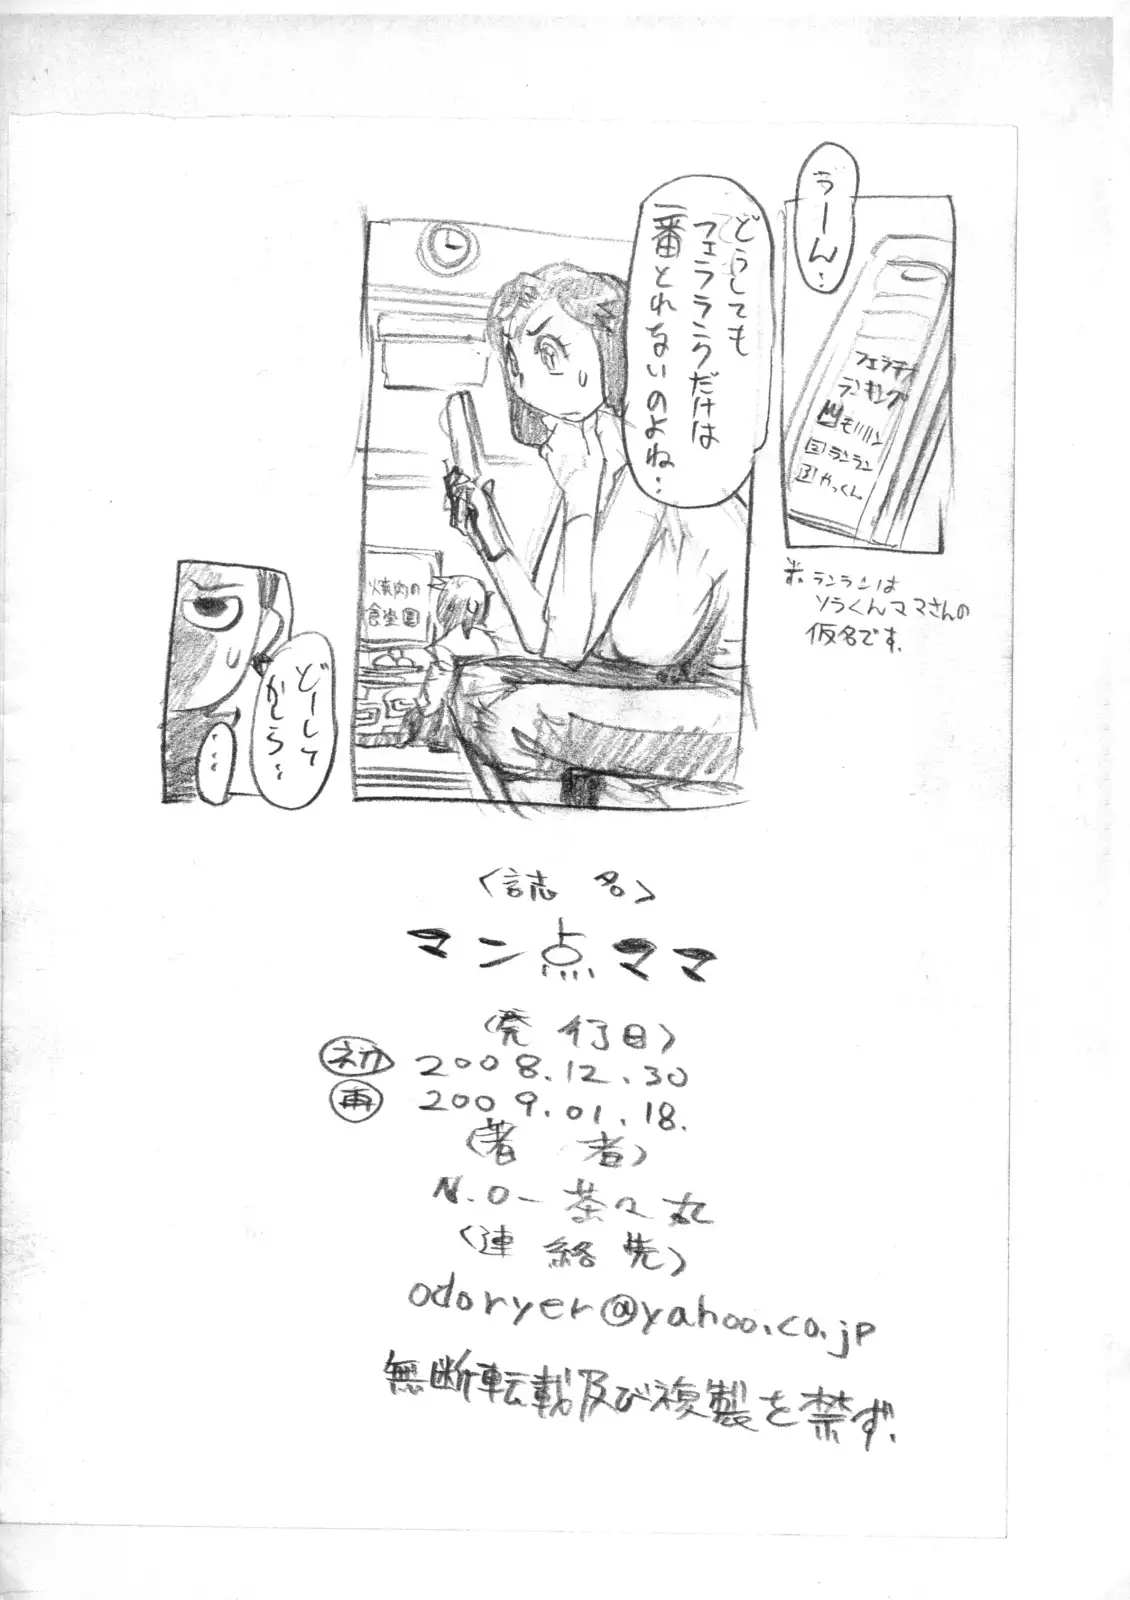 うーん…
フェラチオ
ランキング
1 モリリン
2 ランラン
3 やっくん
※ランランは
ソラくんママさんの
仮名です.
どうしても
フェラランクだけは
一番とれないのよね…
焼肉の
食堂園
どーして
かしら…
…
<誌 名>
マン点ママ
<発行日>
初 2008.12.30
再 2009.01.18.
<著 者>
N.O-茶々丸
<連絡先>
odoryer@yahoo.co.jp
無断転載及び複製を禁ず.